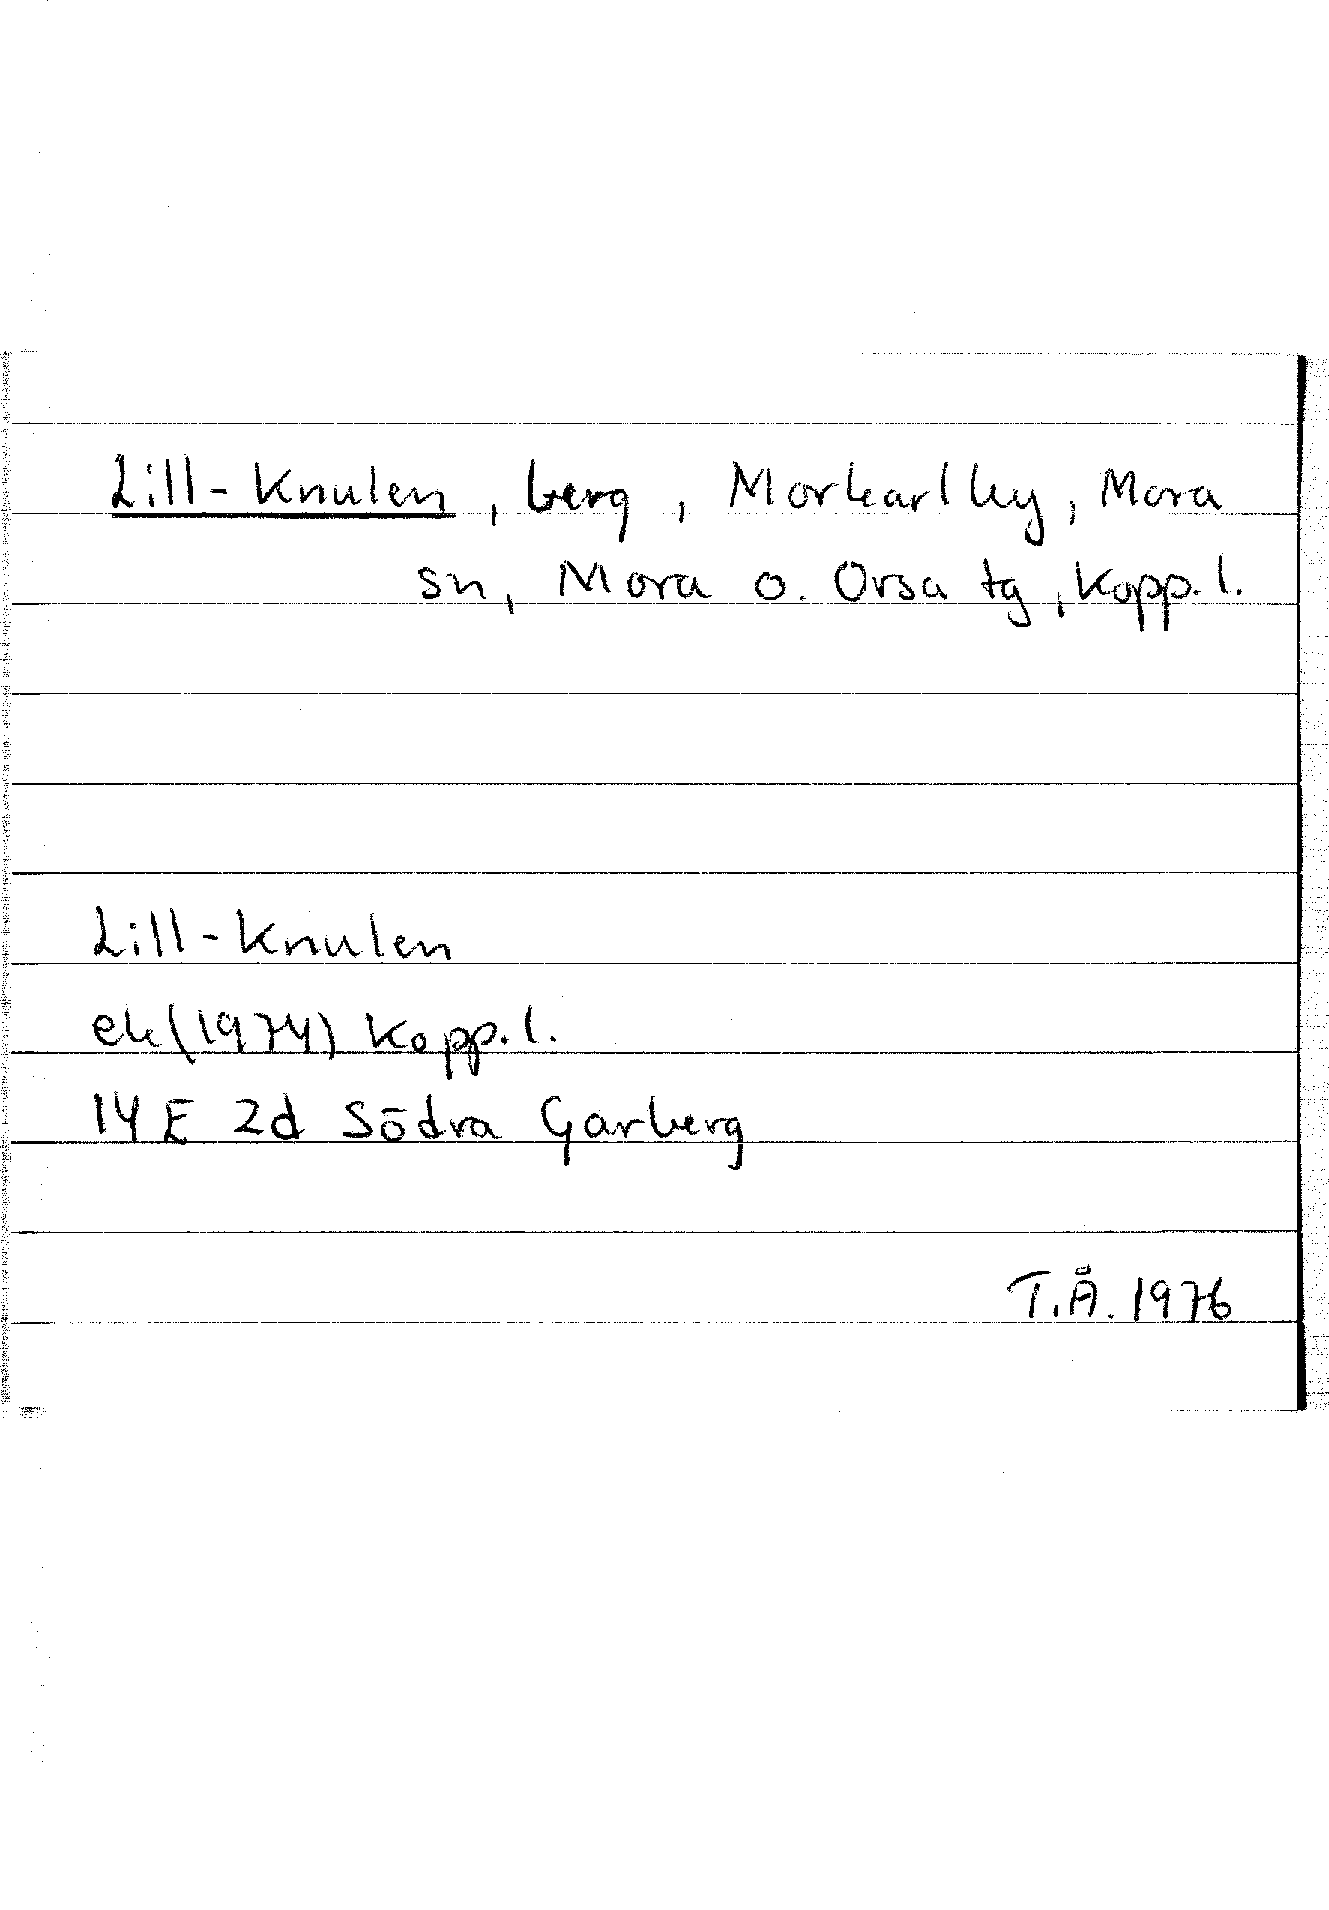 Lill-Knulen, berg, Morkarlby, Mora
sn, Mora o. Orsa tg, Kopp. l.
Lill-Knulen
ek (1974) Kopp. l.
14 E 2d Södra Garberg
T.Å. 1976